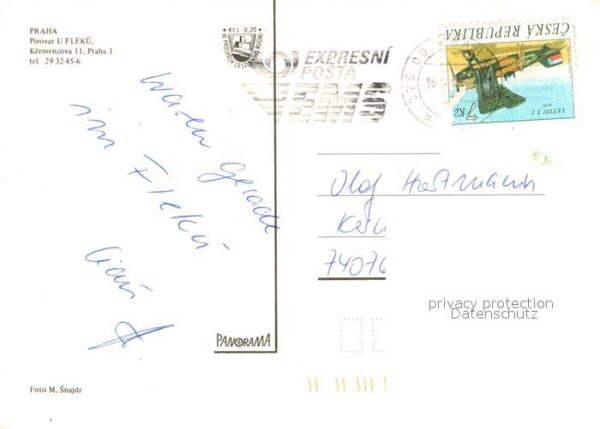 PRAHA
Pivovar U FLEKŮ,
Křemencova 11, Praha 1
tel. 29 32 45-6
Kčs 0,20
EXPRESNÍ
POŠTA
EMS
225 00
ČESKÁ REPUBLIKA
LETOV Š 1
7 Kč
Waren gerade
im Fleku-
Olaf Hartmann
74076
privacy protection
Datenschutz
PANORAMA
Foto M. Šnajdr